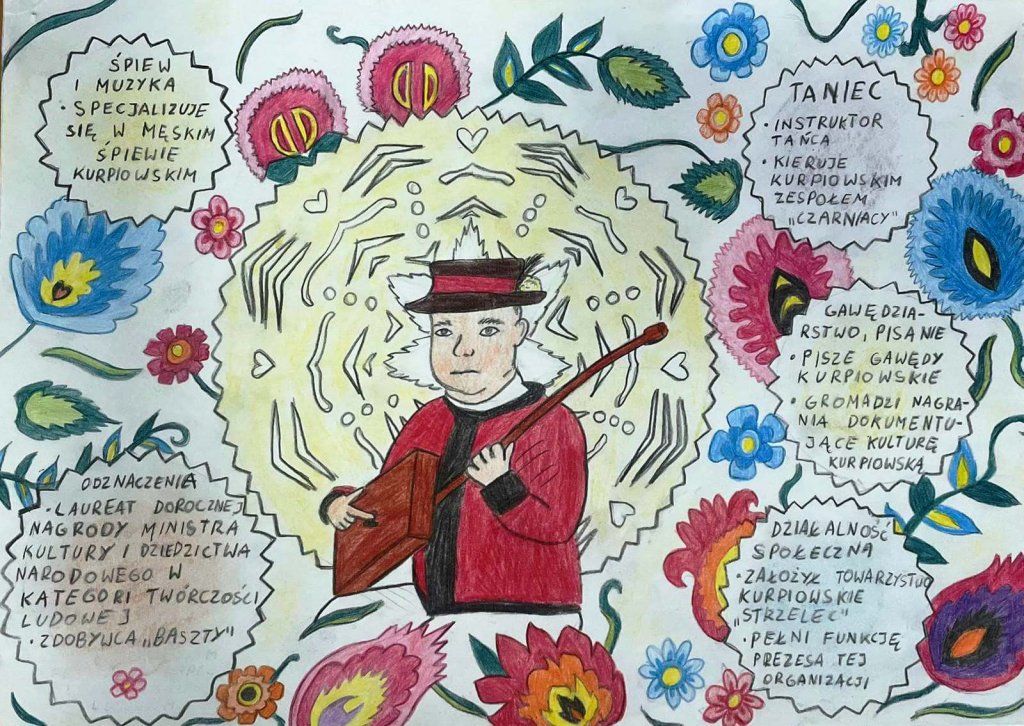 ŚPIEW
I MUZYKA
• SPECJALIZUJE
SIĘ W MĘSKIM
ŚPIEWIE
KURPIOWSKIM
TANIEC
• INSTRUKTOR
TAŃCA
• KIERUJE
KURPIOWSKIM
ZESPOŁEM
„CZARNIACY"
GAWĘDZIA-
RSTWO, PISANIE
• PISZE GAWĘDY
KURPIOWSKIE
• GROMADZI NAGRA-
NIA DOKUMENTU-
JĄCE KULTURĘ
KURPIOWSKĄ
ODZNACZENIA
• LAUREAT DOROCZNEJ
NAGRODY MINISTRA
KULTURY I DZIEDZICTWA
NARODOWEGO W
KATEGORI TWÓRCZOŚCI
LUDOWEJ
• ZDOBYWCA „BASZTY"
DZIAŁALNOŚĆ
SPOŁECZNA
• ZAŁOŻYŁ TOWARZYSTWO
KURPIOWSKIE
„STRZELEC"
• PEŁNI FUNKCJĘ
PREZESA TEJ
ORGANIZACJI